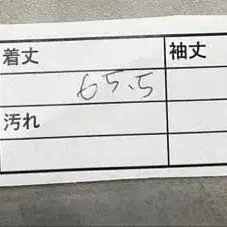 着丈 袖丈
65.5
汚れ